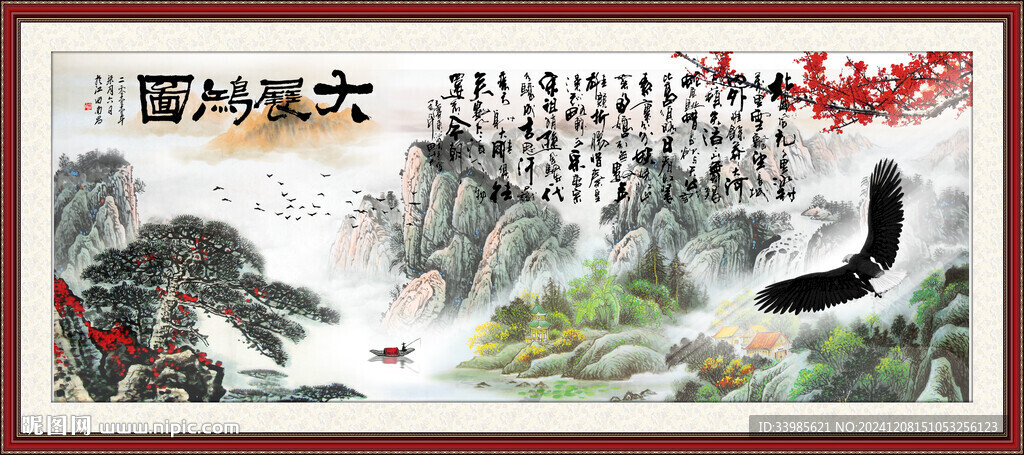 大展鴻圖
北國風光千里冰封
萬里雪飄望長城
內外惟餘莽莽大河
上下頓失滔滔山舞銀
蛇原馳蠟象欲與天公試
比高須晴日看紅
裝素裹分外妖嬈江山
如此多嬌引無數英
雄競折腰惜秦皇
漢武略輸文采唐宗
宋祖稍遜風騷一代
天驕成吉思汗只識
彎弓射大雕俱往
矣數風流人物
還看今朝
柒月六日
昵图网 www.nipic.com
ID:33985621 NO:20241208151053256123